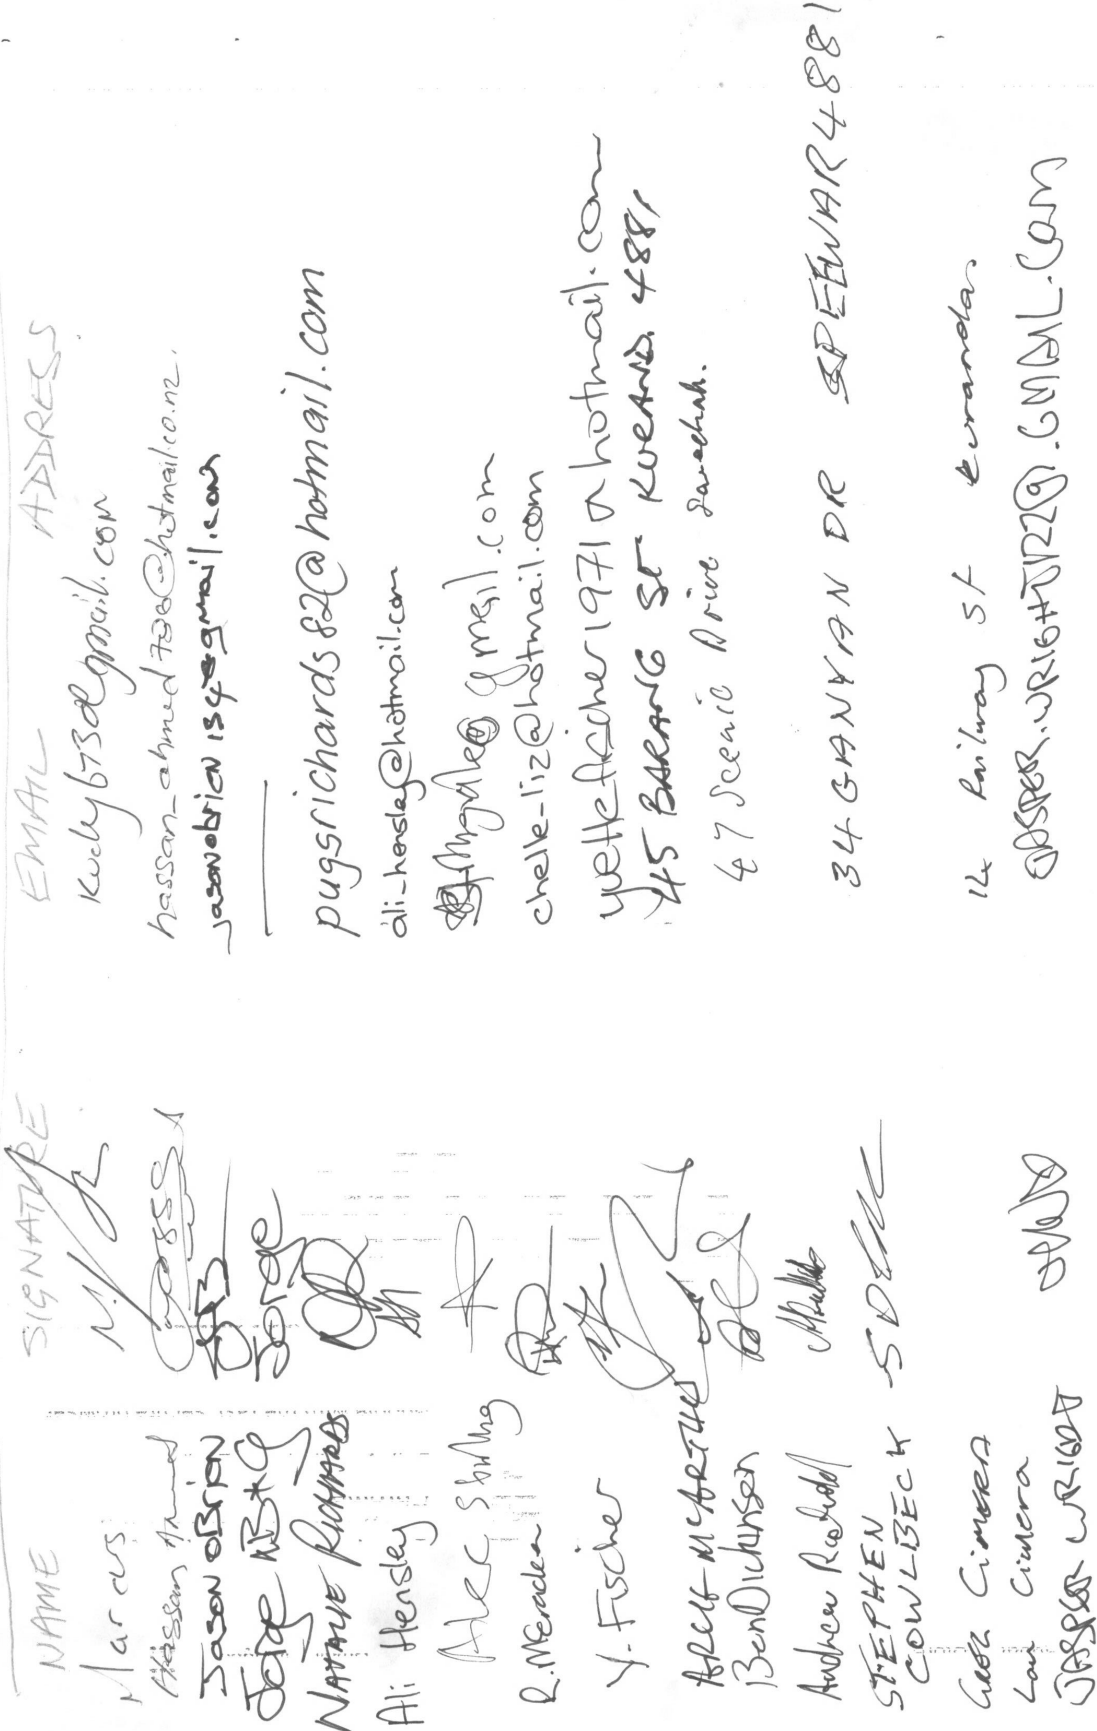 NAME SIGNATURE EMAIL ADDRESS
Marcus kucky673@gmail.com
Hassan Ahmed hassan_ahmed786@hotmail.co.nz
JASON OBRIEN jasonobrien134@gmail.com
Jorge Jorge
NATALIE RICHARDS pugsrichards82@hotmail.com
Ali Hensley ali_hensley@hotmail.com
Alec gmail.com
R. chelle_liz@hotmail.com
Y. Fischer yvettefischer1971@hotmail.com
MCARTHUR 45 BARANG ST 4881
Ben Dickinson 47 Scenic Drive
Andrew
STEPHEN 34 GANYAN DR SPEEWAH 4881
COWLBECK
14 Railway St Kuranda.
JASPER WRIGHT JASPER.WRIGHT1122@.GMAIL.COM